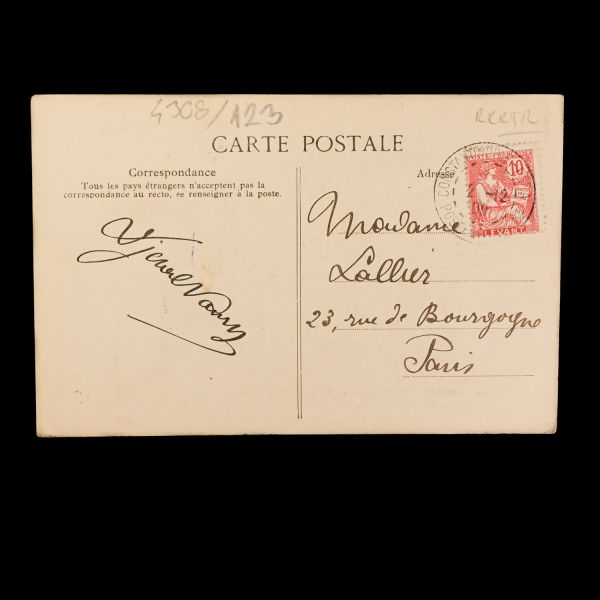 4308/A23
CARTE POSTALE
Correspondance
Tous les pays étrangers n'acceptent pas la
correspondance au recto, se renseigner à la poste.
Adresse
10
LEVANT
Madame
Lallier
23, rue de Bourgogne
Paris